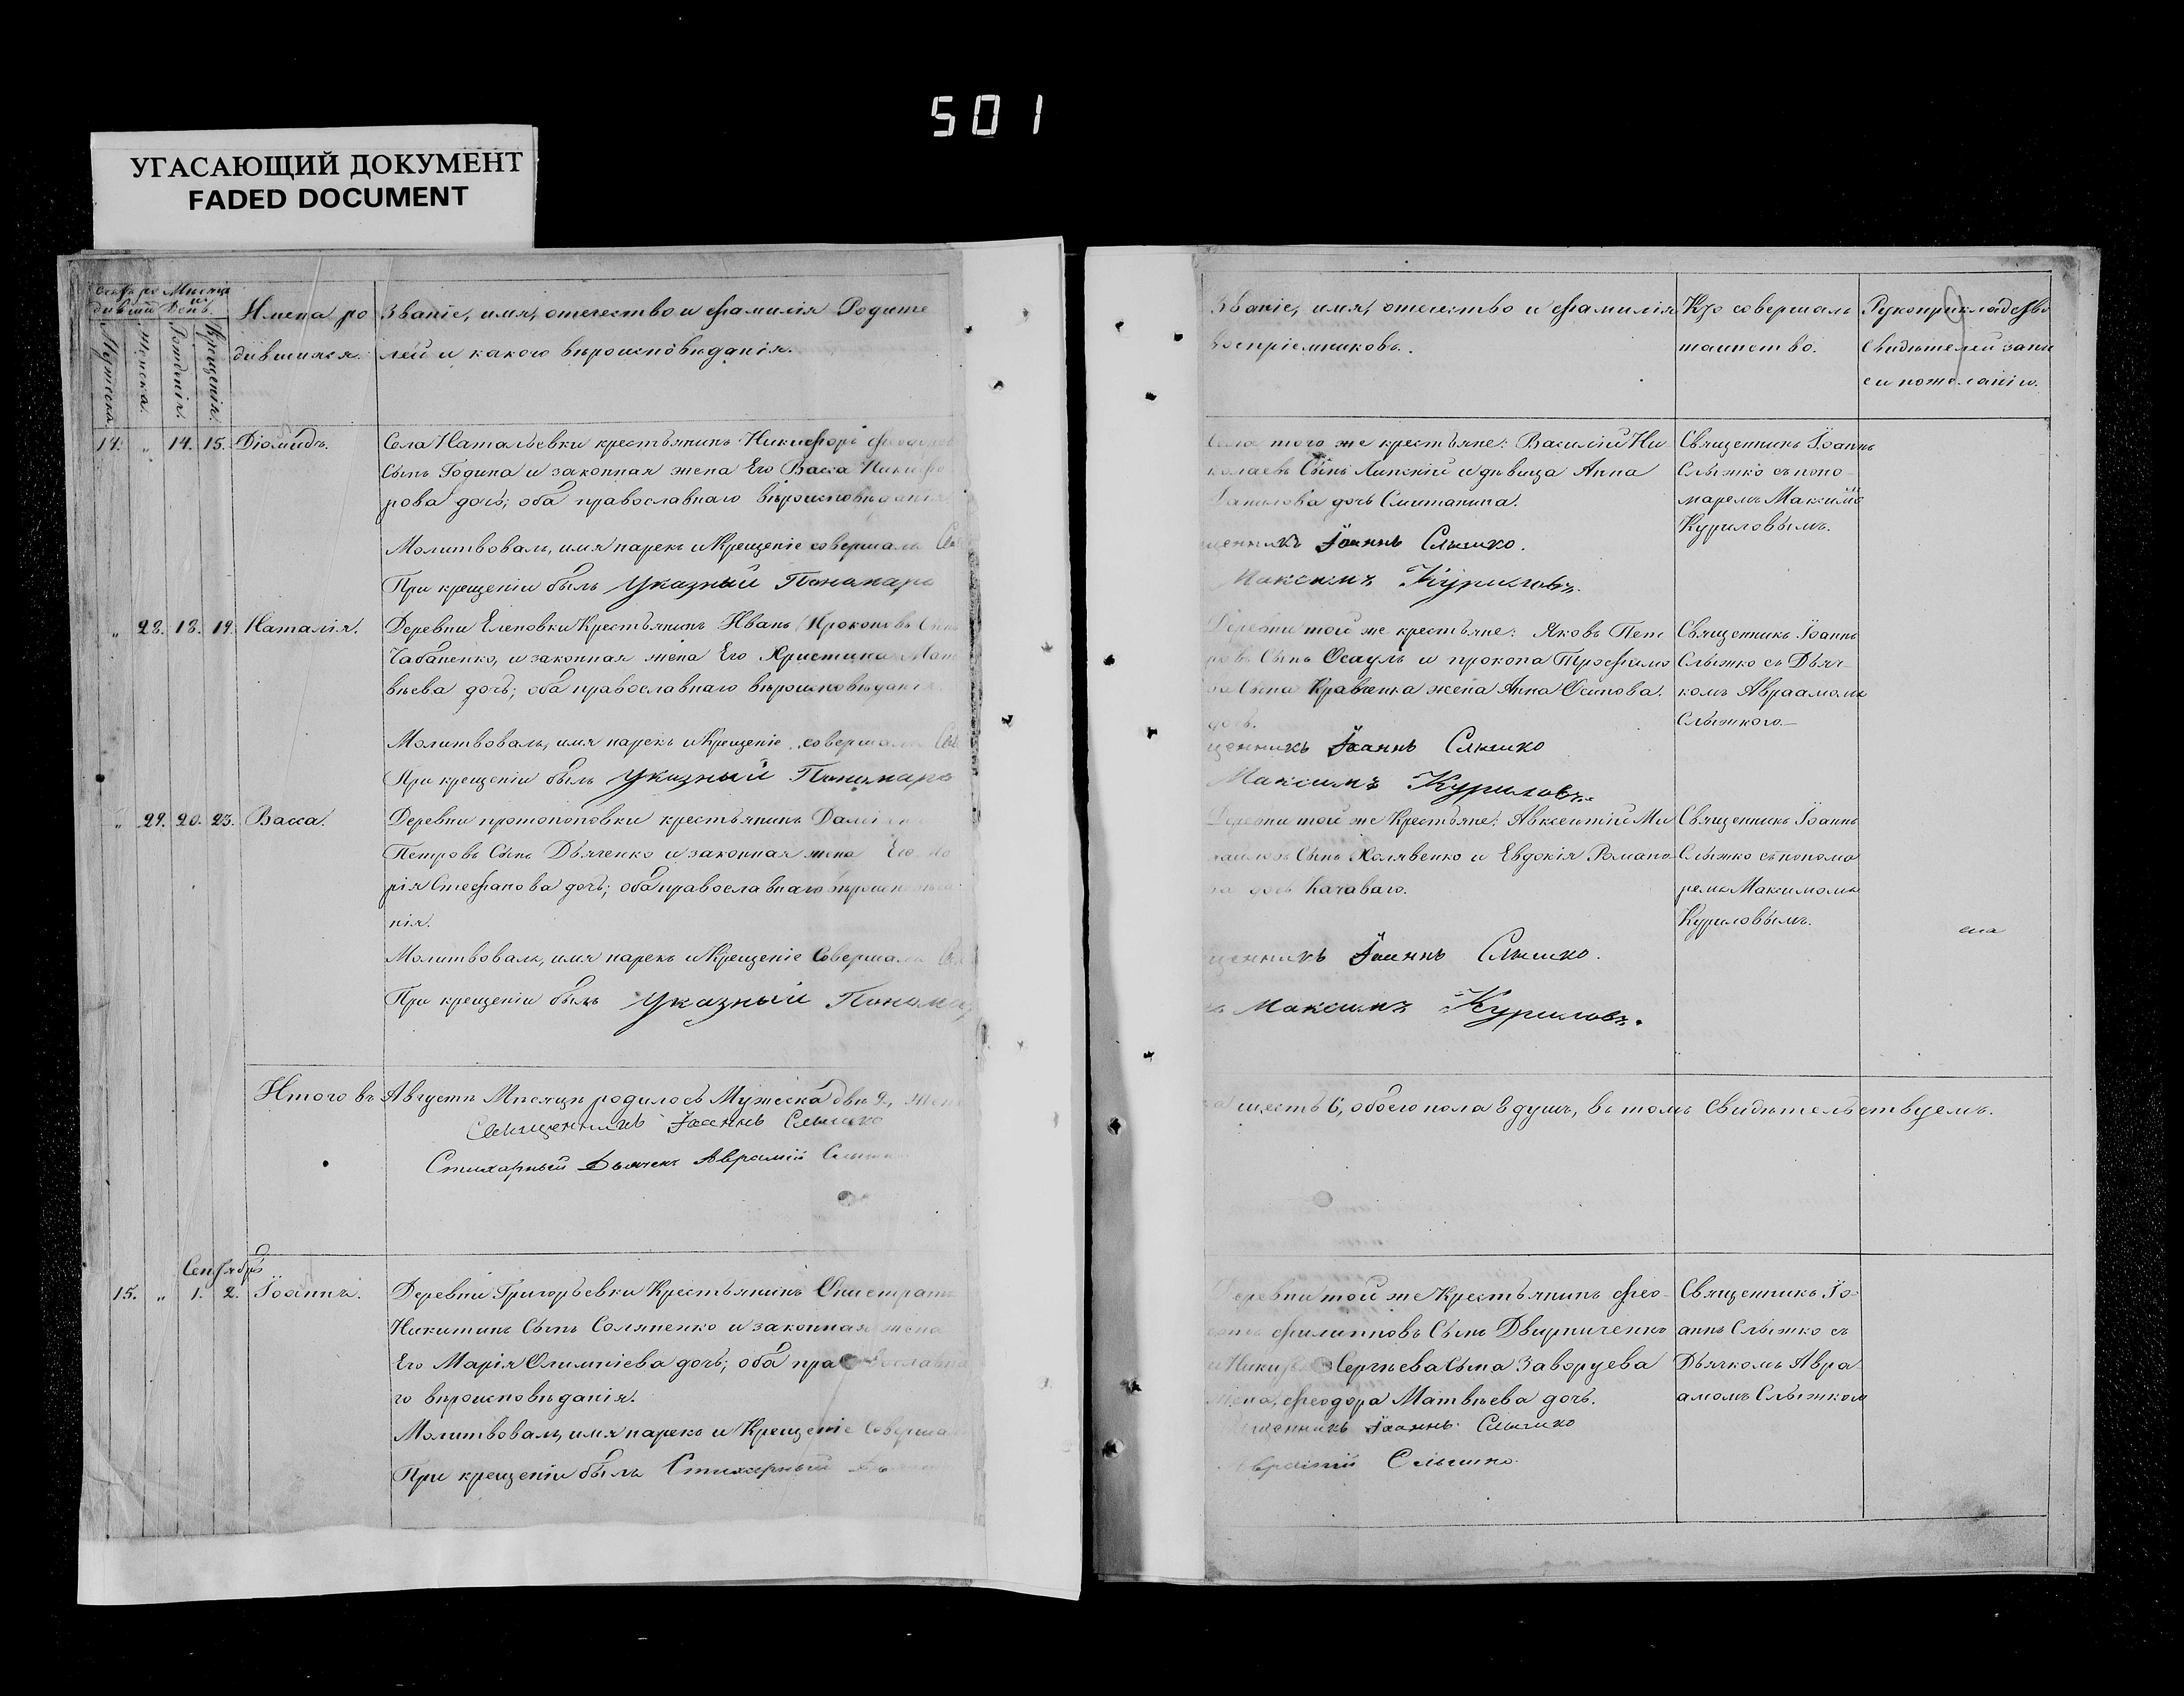 501
УГАСАЮЩИЙ ДОКУМЕНТ
FADED DOCUMENT
Счетъ ро Мѣсяцъ
дивши и День.
Мужеска
Женска.
Рожденія.
Крещенія.
Имена ро
дившихся.
Званіе, имя, отечество и фамилія Родите
лей и какого вѣроисповѣданія.
14. „ 14. 15. Діомидъ.
Села Натальевки крестьянинъ Никифоръ Феодоровъ
Сынъ Година и законная жена Его Васса Никифо
рова дочь; оба православнаго вѣроисповѣданія
Молитвовалъ, имя нарекъ и Крещеніе совершалъ Свя
При крещеніи былъ Указный Пономарь
„ 23. 18. 19. Наталія.
Деревни Еленовки Крестьянинъ Иванъ Прокоповъ Сынъ
Чабаненко, и законная жена Его Христина Мат
вѣева дочь; оба православнаго вѣроисповѣданія.
Молитвовалъ, имя нарекъ и Крещеніе совершалъ Свя
При крещеніи былъ Указный Пономарь
„ 24. 20. 23. Васса.
Деревни протопоповки крестьянинъ
Петровъ Сынъ Дьяченко и законная жена Его Ма
рія Стефанова дочь; оба православнаго вѣроисповѣда
нія.
Молитвовалъ, имя нарекъ и Крещеніе Совершалъ Свя
При крещеніи былъ Указный Пономар
Итого въ Августѣ Мѣсяцѣ родилось Мужеска два 2, жен
Священникъ Іоаннъ Слышко
Стихарный Дьячекъ Аврамій Слышко
Сентябрь
15. „ 1. 2. Іоаннъ.
Деревни Григорьевки Крестьянинъ
Никитинъ Сынъ Соляненко и законная жена
Его Марія Олимпіева дочь; оба православна
го вѣроисповѣданія.
Молитвовалъ, имя нарекъ и Крещеніе Совершалъ
При крещеніи былъ Стихарный Дьячекъ
Званіе, имя, отечество и фамилія
воспріемниковъ.
Кто совершалъ
таинство.
Рукоприкладство
свидѣтелей запи
си по желанію.
Села того же крестьяне: Василій Ни
колаевъ Сынъ Липскій и дѣвица Анна
Данилова дочь Смитанина.
щенникъ Іоаннъ Слышко.
Максимъ Куриловъ.
Священникъ Іоаннъ
Слыжко съ поно-
маремъ Максимъ
Куриловымъ.
Деревни той же крестьяне: Яковъ Пет
ровъ Сынъ Осаулъ и прокопа Трофимо
ва Сына Кравченка жена Анна Осипова.
дочь.
щенникъ Іоаннъ Слышко
Максимъ Куриловъ.
Священникъ Іоаннъ
Слыжко съ Дьяч-
комъ Авраамомъ
Слыжкого.
Деревни той же Крестьяне: Авксентій Ми
хайловъ Сынъ Холявенко и Евдокія Романо
ва дочь Качаваго.
щенникъ Іоаннъ Слышко.
ь Максимъ Куриловъ.
Священникъ Іоаннъ
Слыжко съ понома
ремъ Максимомъ
Куриловымъ.
ка шесть 6, обоего пола 8 душъ, въ томъ свидѣтельствуемъ.
Деревни той же Крестьянинъ Фео-
филипповъ Сынъ Двирниченко
и Сергѣева Сына Заворуева
жена, Феодора Матвѣева дочь.
щенникъ Іоаннъ Слышко
Аврамій Слышко.
Священникъ Іо-
аннъ Слыжко съ
Дьячкомъ Авра
амомъ Слыжком